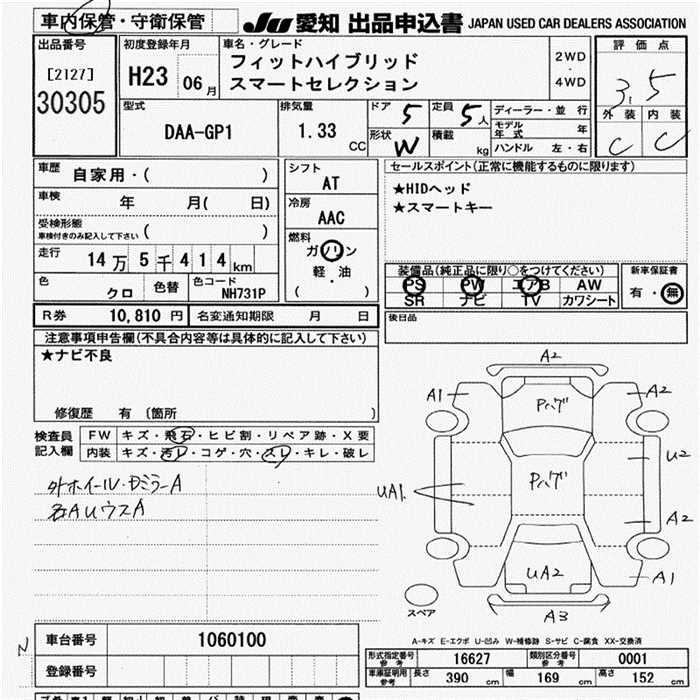 車内保管・守衛保管
JU 愛知 出品申込書 JAPAN USED CAR DEALERS ASSOCIATION
出品番号
[2127]
30305
初度登録年月
H23 06月
車名・グレード
フィットハイブリッド
スマートセレクション
2WD
・
4WD
評価点
3.5
外装 内装
C C
型式
DAA-GP1
排気量
1.33
CC
ドア 5
定員 5人
形状 W
積載 kg
ディーラー・並行
モデル年式 年
ハンドル 左・右
車歴
自家用・( )
車検
年 月( 日)
受検形態
車検付きのみ記入して下さい ( )
走行
14万5千414km
色
クロ
色替
色コード
NH731P
シフト
AT
冷房
AAC
燃料
ガソリン
軽・油
( )
セールスポイント(正常に機能するものに限ります)
★HIDヘッド
★スマートキー
装備品(純正品に限り○をつけてください)
PS PW エアB AW
SR ナビ TV カワシート
新車保証書
有・無
R券 10,810円 名変通知期限 月 日
後日品
注意事項申告欄(不具合内容等は具体的に記入して下さい)
★ナビ不良
修復歴 有 〔箇所 〕
検査員
記入欄
FW キズ・飛石・ヒビ割・リペア跡・X要
内装 キズ・汚レ・コゲ・穴・スレ・キレ・破レ
A2
A1
A2
U2
UA1
A2
A1
UA2
A3
スペア
A-キズ E-エクボ U-凹み W-補修跡 S-サビ C-腐食 XX-交換済
N
車台番号 1060100
登録番号
形式指定番号 参考 16627
類別区分番号 参考 0001
車庫証明用 参考 長さ 390 cm 幅 169 cm 高さ 152 cm